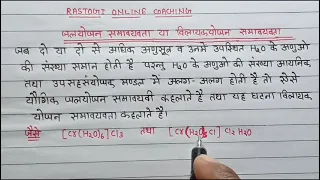 RASTOGI ONLINE COACHING
जलयोजन समावयवता या विलायकयोजन समावयवता
जब दो या दो से अधिक अणुसूत्र व उनमें उपस्थित H₂O के अणुओं
की संख्या समान होती है परन्तु H₂O के अणुओं की संख्या आयनिक
तथा उपसहसंयोजक मण्डल में अलग-अलग होती है तो ऐसे
यौगिक जलयोजन समावयवी कहलाते है तथा यह घटना विलायक
योजन समावयवता कहलाता है।
जैसे [Cr(H₂O)₆]Cl₃ तथा [Cr(H₂O)₅Cl] Cl₂ H₂O